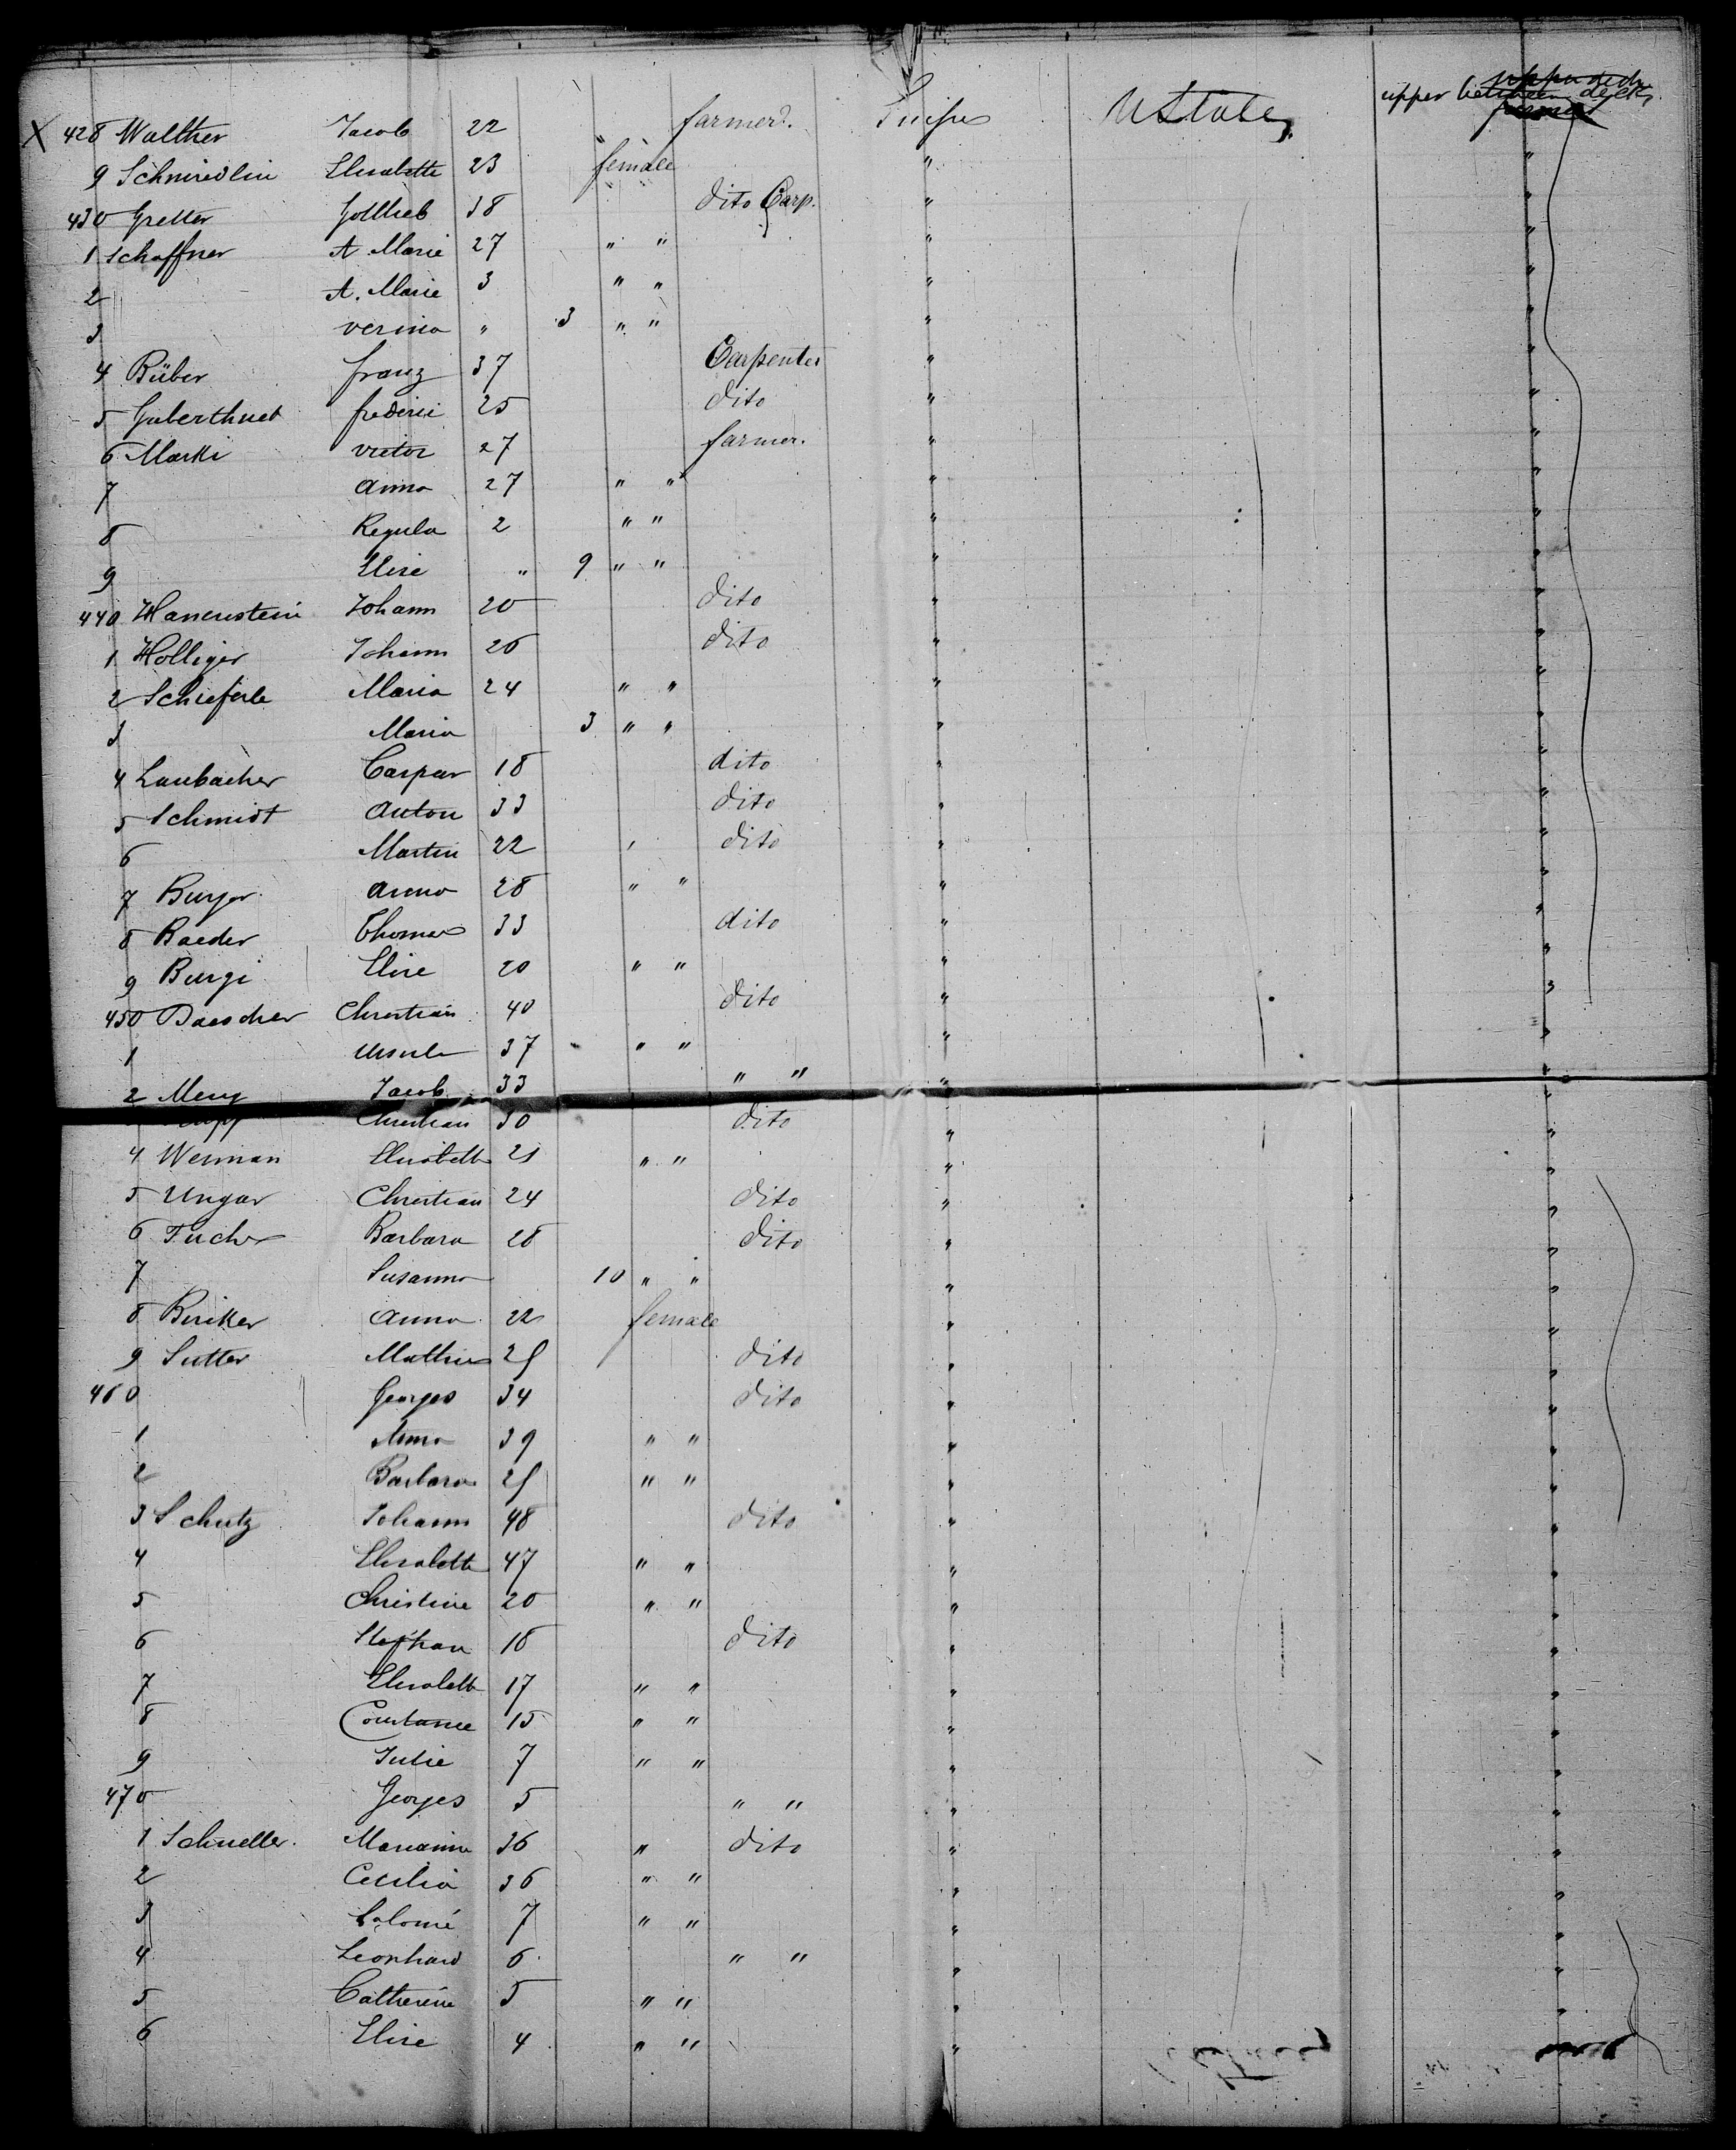 upper deck
X 428 Walther Jacob 22 " farmer. Suisse UStates upper between decks
9 Schmiedlin Elisabette 23 female "  "
430 Gretter Gottlieb 38 dito Carp. " "
1 Schaffner A. Marie 27 " " " "
2 A. Marie 3 " " " "
3 verina " 3 " " " "
4 Büber franz 37 Carpenter " "
5 Guberthuet frederic 25 dito " "
6 Marki victor 27 farmer. " "
7 anna 27 " " " "
8 Regula 2 " " " "
9 Elise " 9 " " " "
440 Hanenstein Johann 20 dito " "
1 Holliger Johann 26 dito " "
2 Schieferle Maria 24 " " " "
3 Maria 3 " " " "
4 Laubacher Caspar 18 dito " "
5 Schmidt Anton 33 dito " "
6 Martin 22 dito " "
7 Burger anna 28 " " " "
8 Baeder Thomas 33 dito " "
9 Burgi Elise 20 " " " "
450 Daescher Christian 40 dito " "
1 Ursula 37 " " " "
2 Meng Jacob 33 " " " "
Christian 30 dito " "
4 Werman Elisabeth 21 " " " "
5 Ungar Christian 24 dito " "
6 Fuchs Barbara 28 dito " "
7 Susanna 10 " " " "
8 Beriker anna 22 female " "
9 Sutter Mathias 25 dito " "
460 Georges 34 dito " "
1 Anna 39 " " " "
2 Barbara 25 " " " "
3 Schutz Johann 48 dito " "
4 Elisabeth 47 " " " "
5 Christine 20 " " " "
6 Stephan 18 dito " "
7 Elisabeth 17 " " " "
8 Constance 15 " " " "
9 Julie 7 " " " "
470 Georges 5 " " " "
1 Schneller. Marianna 36 " dito " "
2 Cecilia 36 " " " "
3 Salomé 7 " " " "
4 Leonhard 6 " " " "
5 Catherine 5 " " " "
6 Elise 4 " " "